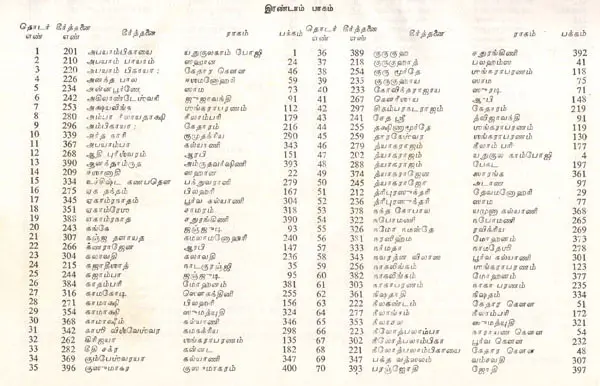 இரண்டாம் பாகம்
தொடர் எண் கீர்த்தனை எண் கீர்த்தனை ராகம் பக்கம் தொடர் எண் கீர்த்தனை எண் கீர்த்தனை ராகம் பக்கம்
1 201 அபயாம்பிகாயை யதுகுலகாம் போஜி 1 36 389 குருகுஹ சதுரங்கிணி 392
2 210 அபயாம் பாயாம் ஸஹான 24 37 218 பலஹம்ஸ 41
3 220 அபயாம் பிகாயா: கேதார கௌள 46 38 254 குரு மூர்தே ஶங்கராபரணம் 118
4 226 அளக்த பால 59 39 235 குருகுஹாய ஸாம 75
5 234 அன்னபூர்ணே ஸாம 73 40 233 கோவிந்தராஜாய 71
6 242 அகிலாண்டேஶ்வரீ ஜுஜாவந்தி 91 41 267 கௌரீஸாய ஆரபி 148
7 253 அக்ஷயலிங்க ஶங்கராபரணம் 112 42 297 சிதம்பரநடராஜம் கேதாரம் 219
8 280 அம்பா நீலாயதாக்ஷி நீலாம்பரி 179 43 241 சேத ஶ்ரீ த்விஜாவந்தி 91
9 296 அம்பிகாயா: கேதாரம் 216 44 255 தக்ஷிணாமூர்தே ஶங்கராபரணம் 119
10 339 குமுதக்ரிய 290 45 259 தாரகேஶ்வர ஶங்கராபரணம் 130
11 367 அபயாம்பா கல்யாணி 343 46 279 த்யாகராஜம் நீலாம் பரி 177
12 268 ஆதி புரீஶ்வரம் ஆரபி 151 47 202 த்யாகராஜம் யதுகுல காம்போஜி 4
13 390 ஆனந்தாம்ருத அம்ருதவர்ஷிணி 393 48 288 த்யாகராஜம் 197
14 209 ஈஶானாதி ஸஹான 22 49 374 த்யாகராஜேன ஸாரங்க 361
15 334 உச்சிஷ்ட கணபதௌ 279 50 245 த்யாகராஜோ அடாண 97
16 275 ஏக தந்தம் பிலஹரி 167 51 212 த்ரிபுரஸுந்தரி தேவமனோஹரி 29
17 345 ஏகாம்ரநாதம் பூர்வ கல்யாணி 304 52 236 த்ரிபுரஸுந்தரி ஸாம 77
18 351 ஏகாம்ரேஶ 318 53 378 நந்த கோபால யமுனா கல்யாணி 368
19 388 ஏகாம்ரநாத சதுரங்கிணி 390 54 322 நபோமணி நபோமணி 265
20 243 கங்கே ஜுஞ்ஜுடி 93 55 326 நமோ நமஸ்தே ரவிக்ரிய 269
21 307 கஞ்ஜ தளாயத கமலாமனோஹரி 240 56 381 நரஸிம்ஹ மோஹனம் 373
22 266 கணராஜேன ஆரபி 147 57 333 நர்மதா நாமதேஶி 278
23 304 கலாவதி கலாவதி 236 58 343 பூர்வ கல்யாணி 301
24 215 கஜாதீஶாத் நாடகுரஞ்ஜி 35 59 256 நாகலிங்கம் ஶங்கராபரணம் 123
25 244 கஜாம்பா ஜுஞ்ஜுடி 95 60 382 நாகலிங்கம் மோஹனம் 377
26 384 காதம்பரீ மோஹனம் 381 61 303 நாகாபரணம் நாகா பரணம் 235
27 316 காமகோடி 255 62 361 நிஷதாதி நிஷதம் 334
28 271 காமாக்ஷி பிலஹரி 156 63 222 நீலகண்டம் கேதார கௌள 51
29 354 காமாக்ஷி ஸுமத்யுதி 324 64 277 நீலாங்கம் நீலாம்பரி 172
30 368 காமாக்ஷீம் கல்யாணி 346 65 353 நீலாசல ஸுமத்யுதி 321
31 342 காஶி விஶ்வேஶ்வர கமகக்ரிய 298 66 223 நீலோத்பலாம்பா நாராயண கௌள 54
32 262 கிரிஜயா ஶங்கராபரணம் 135 67 302 நீலோத்பலாம்பிகா பூர்வ கௌள 232
33 282 கீதி சக்ர கன்னட 182 68 221 நீலோத்பலாம்பிகாயை கேதார கௌள 48
34 369 கும்பேஶ்வராய கல்யாணி 347 69 347 பக்த வத்ஸலம் வம்சவதி 307
35 396 குஸுமாகர குஸுமாகரம் 400 70 393 பரஞ்ஜோதி ஜோதி 397